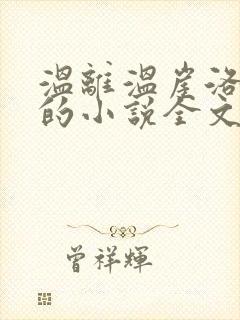 溫離溫崖洛
的小說全文
曾祥輝